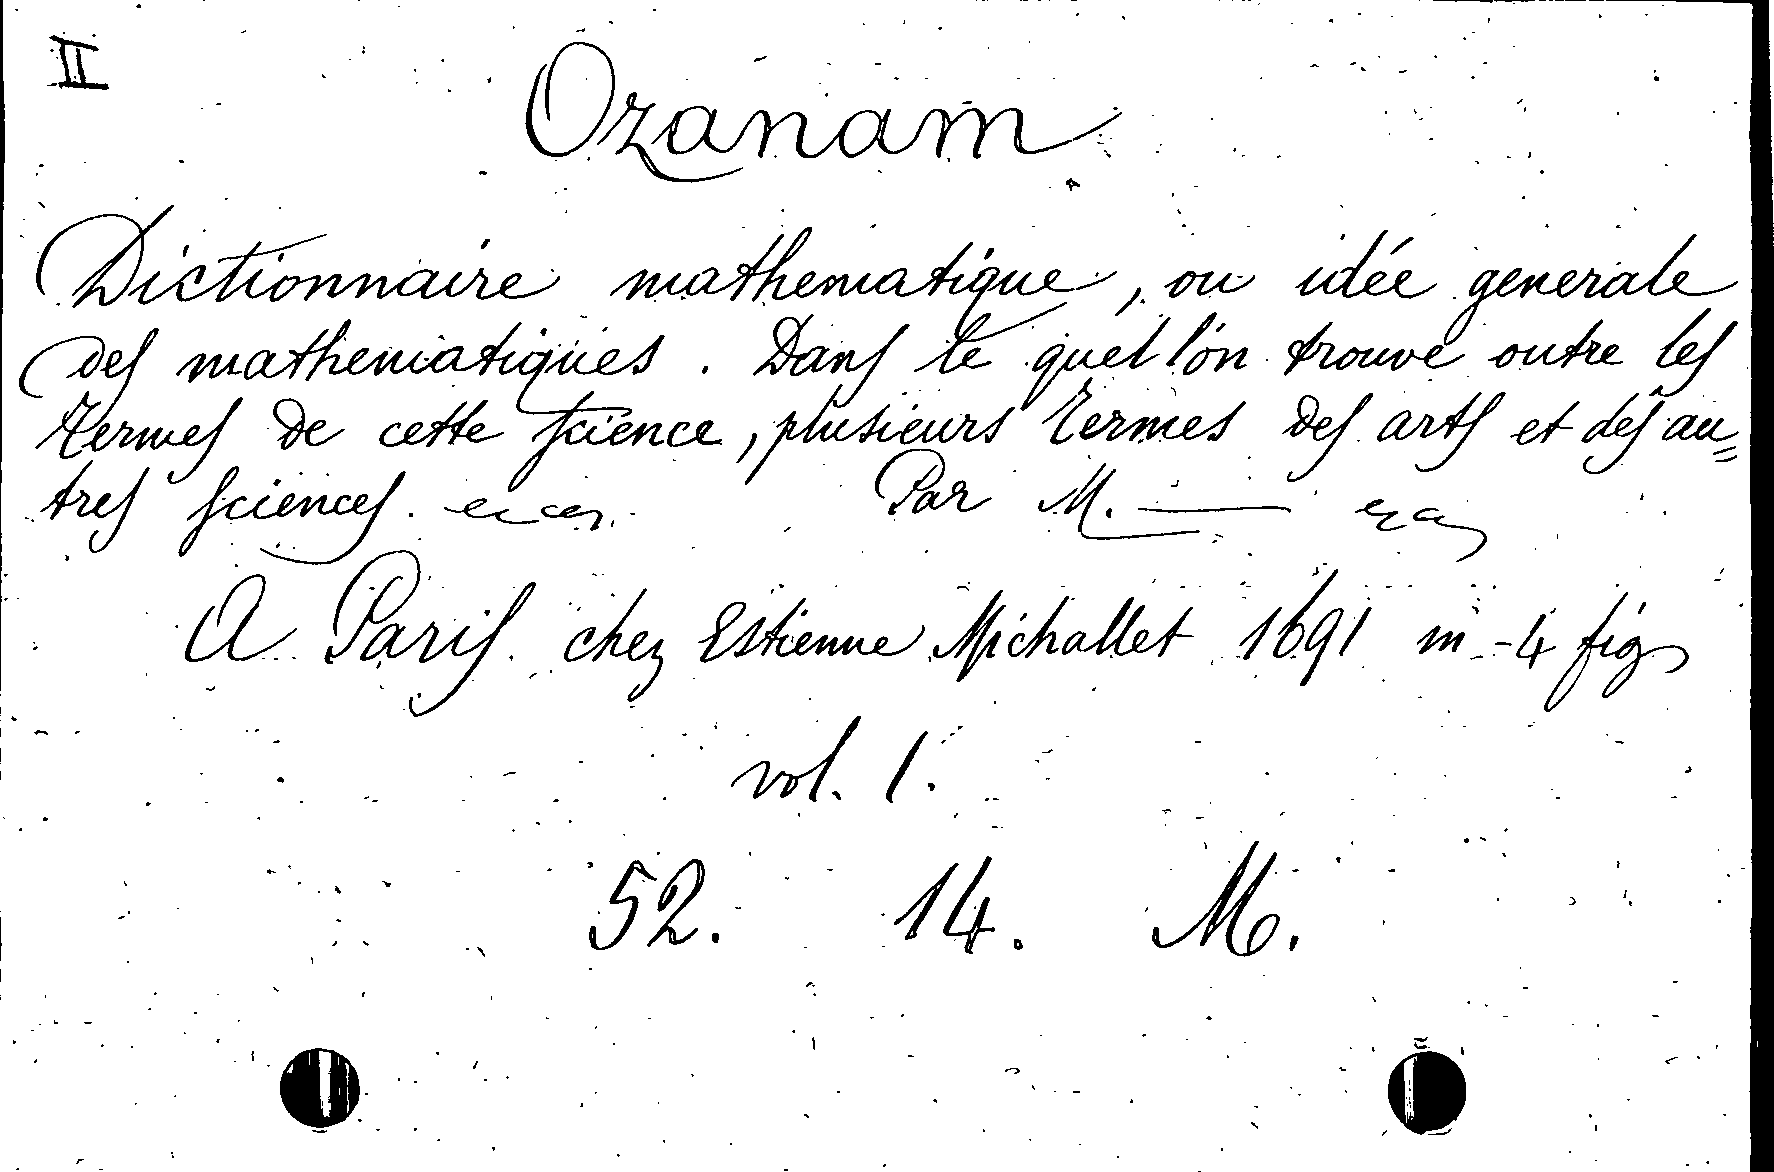 II
Ozanam
Dictionnaire mathematique, ou idée generale
des mathematiques. Dans le quel l'on trouve outre les
termes de cette science, plusieurs termes des arts et des au=
tres sciences. Par M. —
A Paris chez Estienne Michallet 1691 in-4 fig
vol. 1.
52. 14. M.